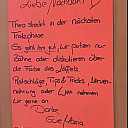 Liebe Nachbarn!
Theo steckt in der nächsten
Trotzphase
Es geht ihm gut, wir putzen nur
Zähne oder diskutieren über
die Farbe des Löffels.
Ratschläge, Tips & Tricks, Nerven-
nahrung oder Wein nehmen
wir gerne an.
Danke,
Eure